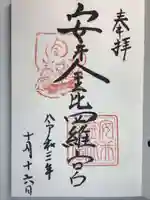 奉拝
安井金比羅宮
令和三年
十月十六日